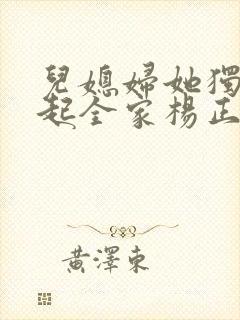 兒媳婦她獨
起全家楊正
黃澤東